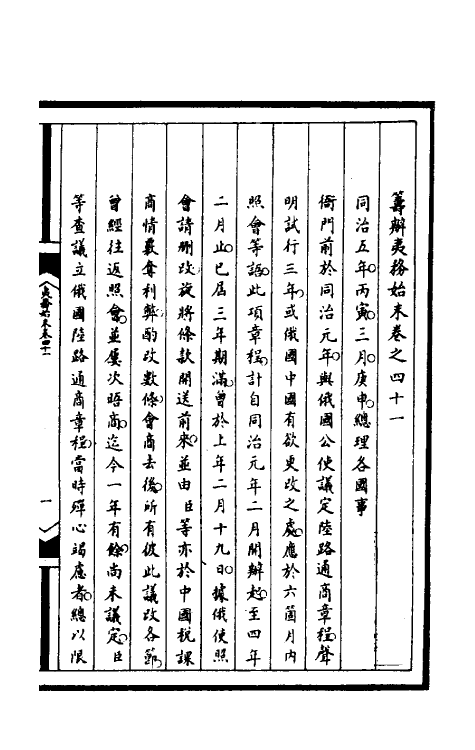 籌辦夷務始末卷之四十一
同治五年。丙寅。三月。庚申。總理各國事
衙門前於同治元年。與俄國公使議定陸路通商章程。聲
明試行三年。或俄國中國有欲更改之處。應於六箇月內
照會等語。此項章程。計自同治元年二月開辦起。至四年
二月止。已屆三年期滿。曾於上年二月十九日。據俄使照
會請刪改。旋將條款開送前來。並由臣等亦於中國稅課
商情覈奪利弊。酌改數條。會商去後。所有彼此議改各節。
曾經往返照會。並屢次晤商。迄今一年有餘。尚未議定。臣
等查議立俄國陸路通商章程。當時殫心竭慮者。總以限
夷務始末卷四十一
一